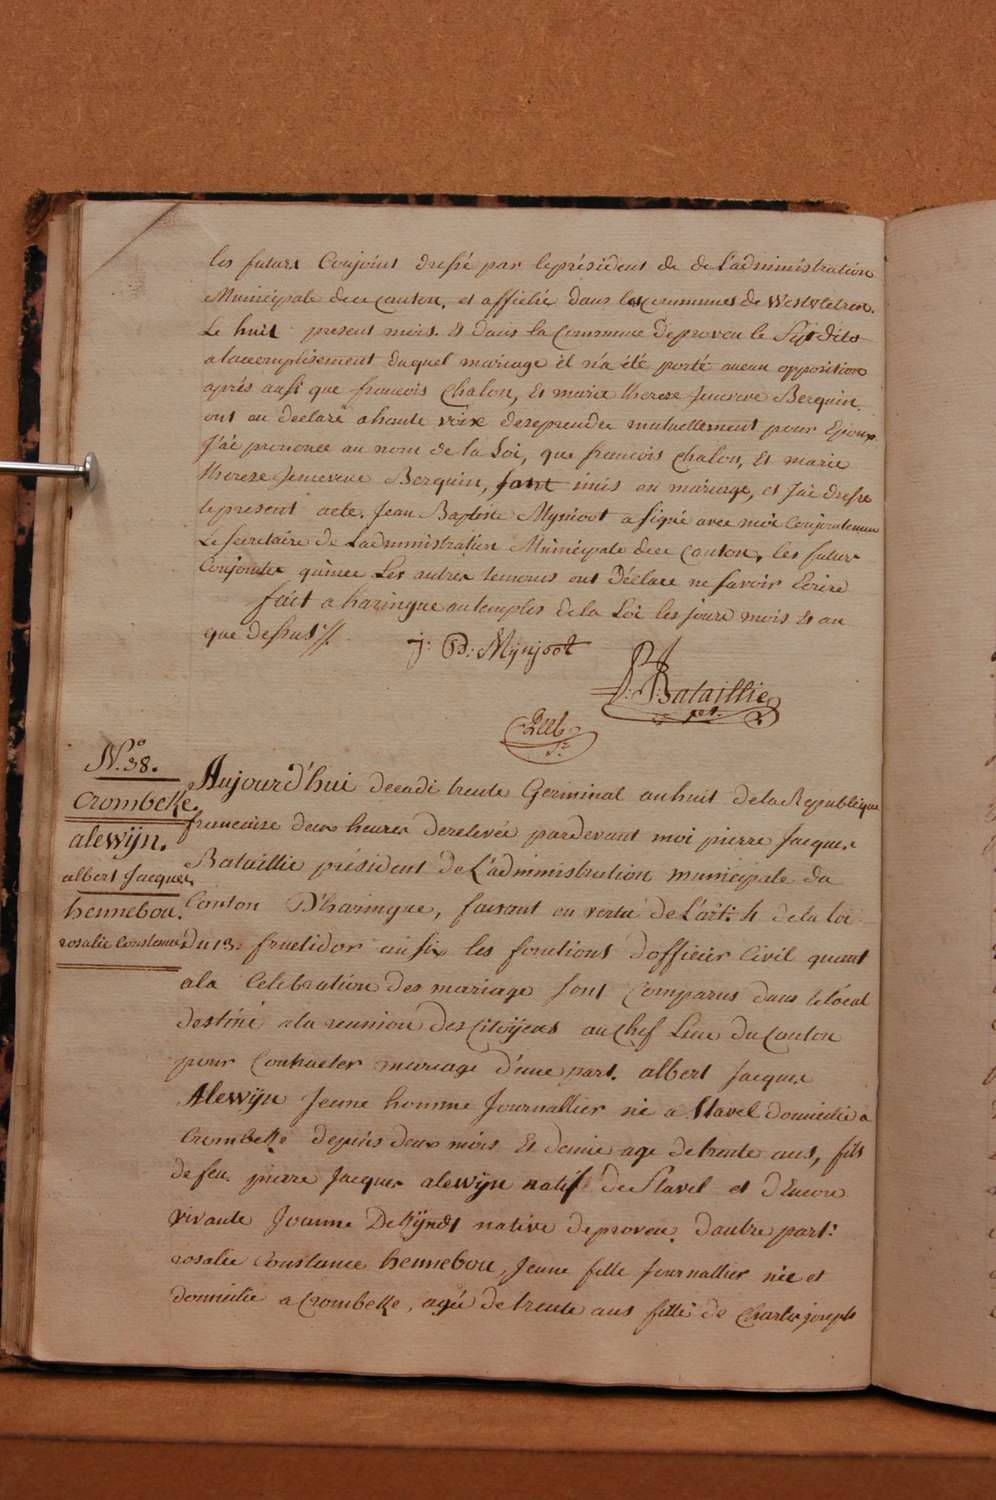 les futurs Conjoint dressé par le président de de L'administration
Municipale dece canton, et affichié dans les communes de Westvletren.
Le huit present mois. Et dans la Commune de proven le dits
a laccomplisement duquel mariage il n'a été porté aucun opposition
aprés ausi que francois Chalon, Et marie therese Jeneveve Berquin
ont au declaré a haute voix desprendre mutuellement pour Epoux
J'ai prononcé au nom de la Loi, que francois Chalon, Et marie
therese Jeneveve Berquin, sont unis en mariage, et J'ai dresse
le present acte. Jean Baptiste Mynjoot a signé avec moi Conjointemen
Le Secretaire de Ladministration Municipale dece Canton, les futur
Conjointes Les autres temoins ont Déclare ne savoir Ecrire
fait a haringue au temples de la Loi les jours mois Et an
que dessus //.
j: B: Mynjoot
P: J: Bataillie
N.º 38.
Crombekke.
alewijn.
albert Jacques
hennebou.
rosalie Constance
Aujourd'hui decadi trente Germinal an huit de la Republique
francaise deux heures derelevée pardevant moi pierre Jacques
Bataillie président de L'administration municipale du
Canton D'haringue, faisant en vertu de L'art: 4 de la loi
du 13: fructidor an six les fonctions dofficier Civil quant
a la Celebration des mariage sont Comparus dans le local
destiné a la reunion des Citoÿens au Chef Lieu du Canton
pour Contracter mariage d'une part. albert Jacques
Alewijn Jeune homme Journallier né a Stavel domicilié a
Crombekke depuis deux mois Et demie age de trente ans, fils
de feu pierre Jacques alewijn natif de Stavel et d'Encore
vivante Joanne DeKÿndt native de proven. dautre part:
rosalie Constance hennebou, Jeune fille Journallier née et
domicilie a Crombekke, agée de trente ans fille de Charles joseph